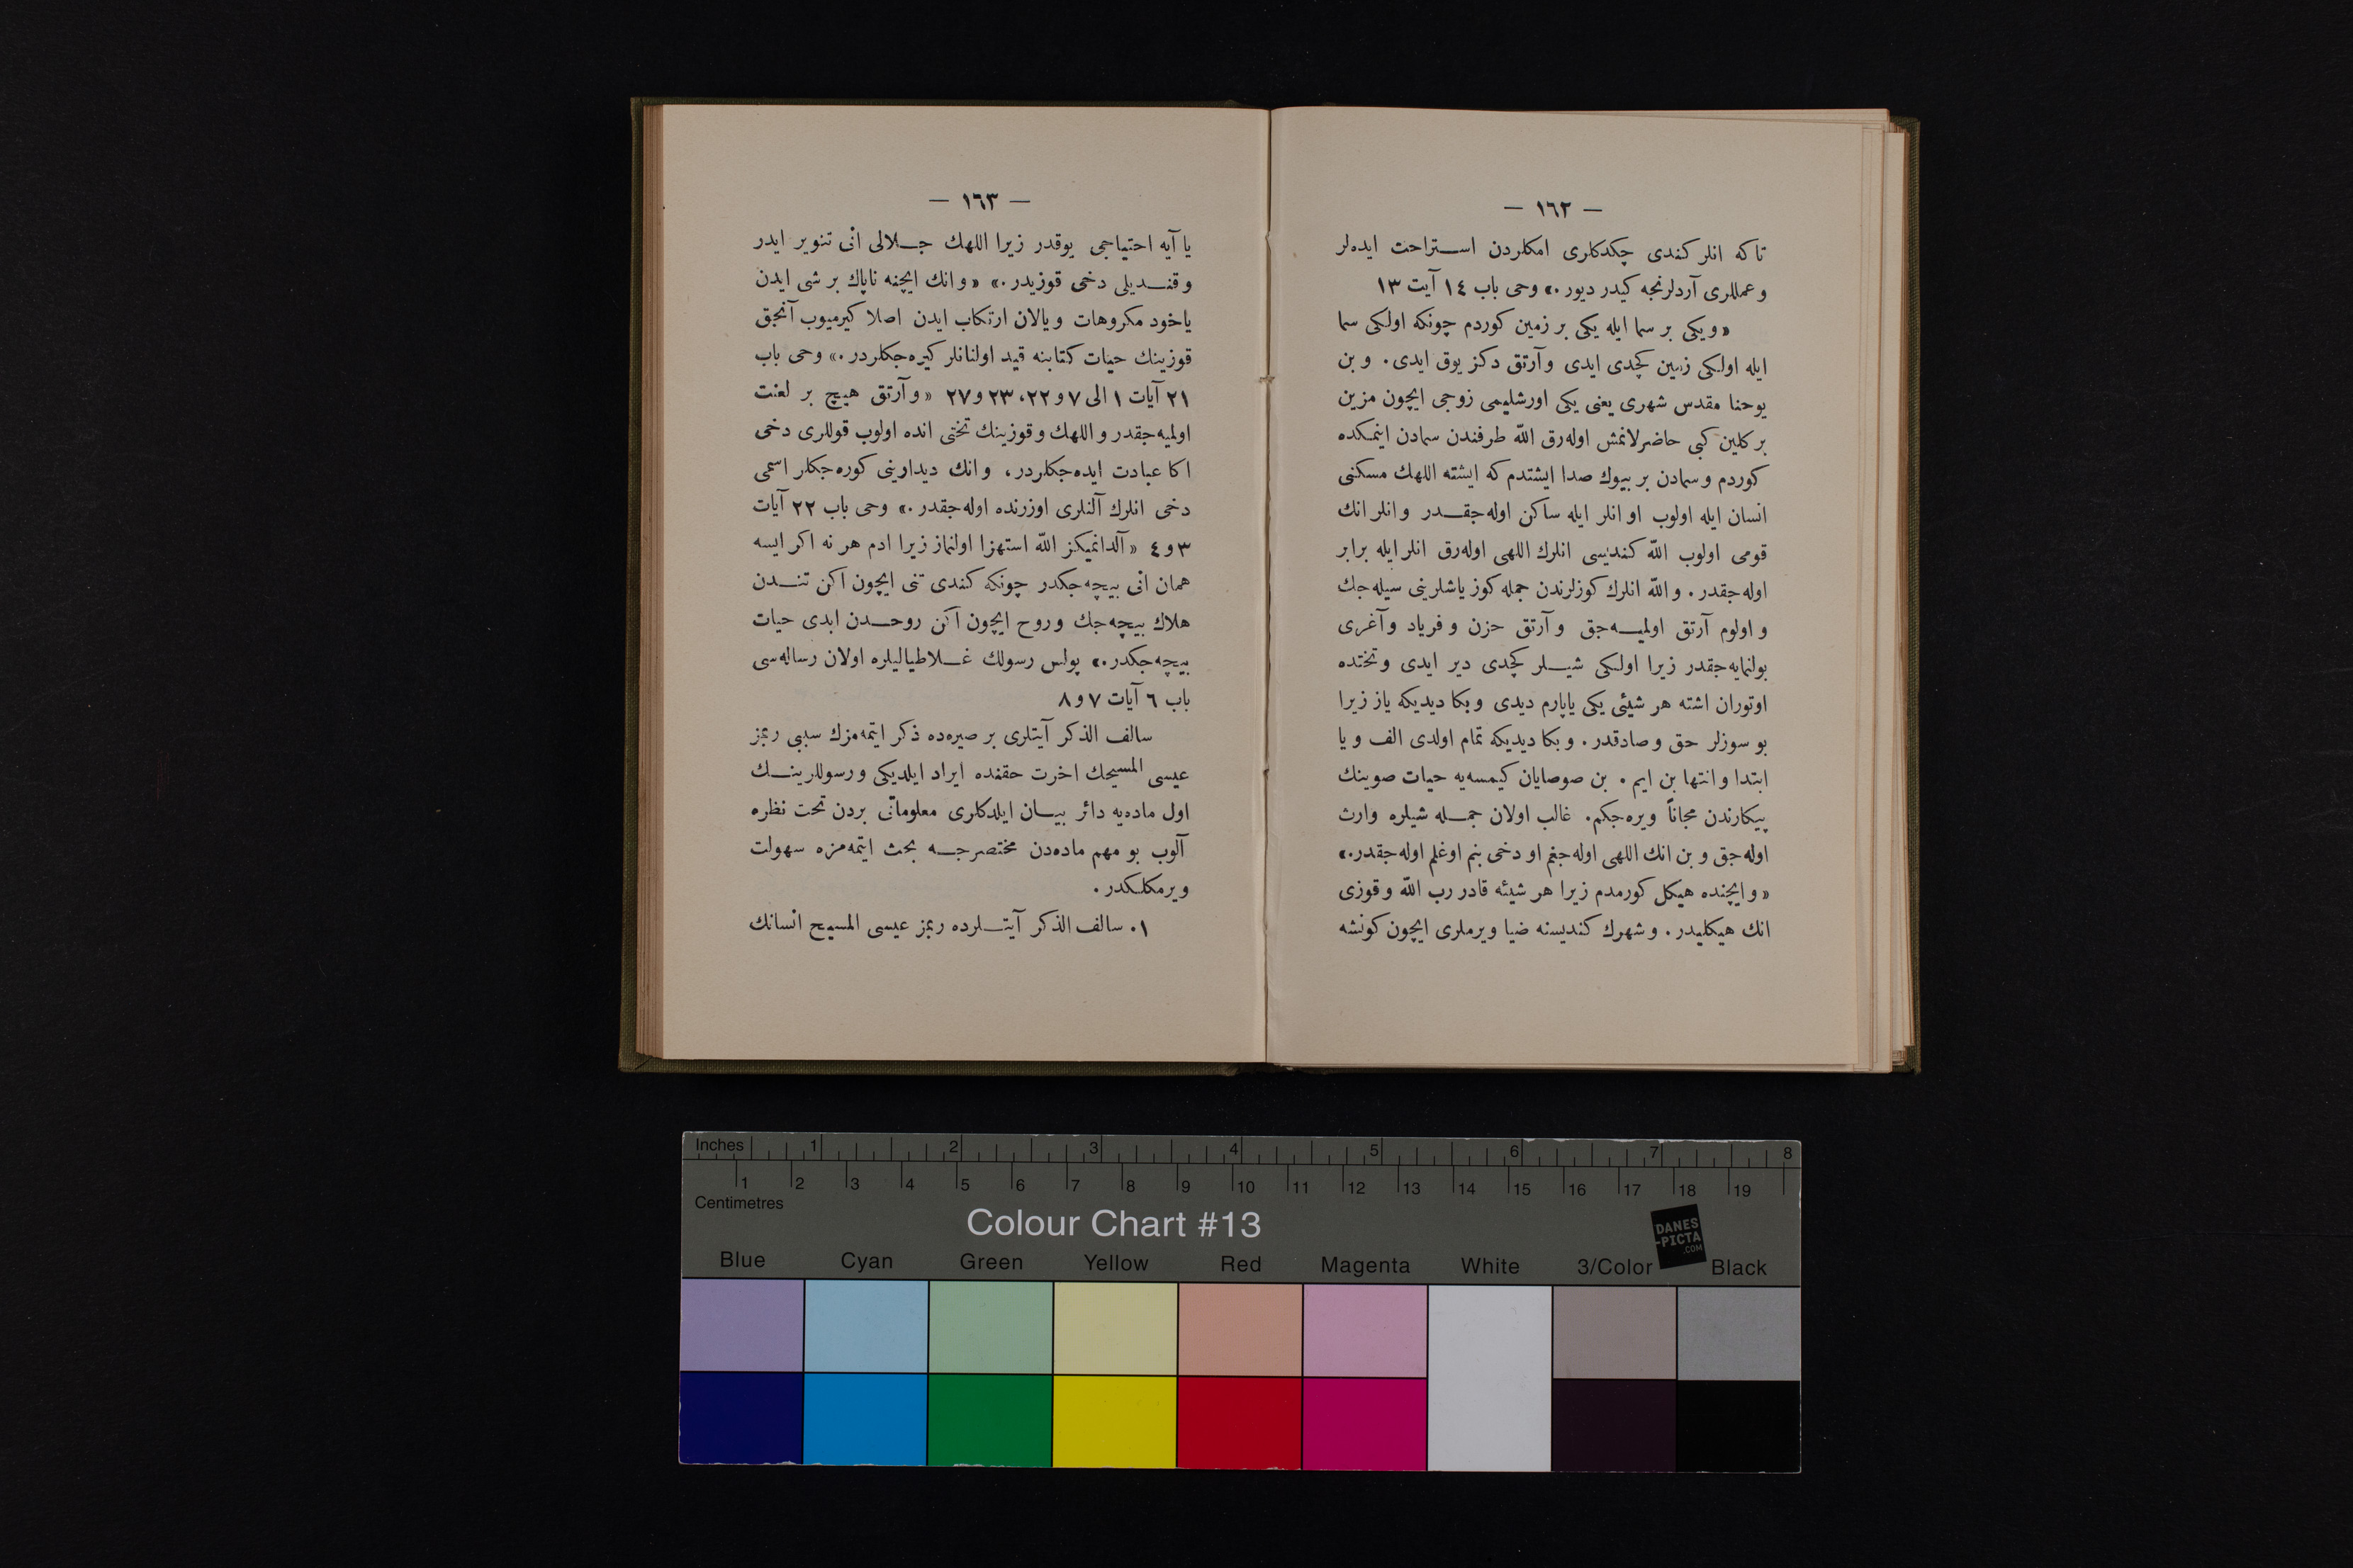 — ١٦٢ —
تاكه انلر كندى چكدكلرى امكلردن استراحت ايده‌لر
و عمللرى آردلرنجه كيدر ديور .» وحى باب ١٤ آيت ١٣
«و يكى بر سما ايله يكى بر زمين كوردم چونكه اولكى سما
ايله اولكى زمين كچدى ايدى و آرتق دكز يوق ايدى . و بن
يوحنا مقدس شهرى يعنى يكى اورشليمى زوجى ايچون مزين
بر كلين كبى حاضرلانمش اوله‌رق اللّه طرفندن سمادن اينمكده
كوردم و سمادن بر بيوك صدا ايشتدم كه ايشته اللهك مسكنى
انسان ايله اولوب او انلر ايله ساكن اوله‌جقدر و انلر انك
قومى اولوب اللّه كنديسى انلرك اللهى اوله‌رق انلر ايله برابر
اوله‌جقدر . و اللّه انلرك كوزلرندن جمله كوز ياشلرينى سيله‌جك
و اولوم آرتق اولميه‌جق و آرتق حزن و فرياد و آغرى
بولنمايه‌جقدر زيرا اولكى شيلر كچدى دير ايدى و تختده
اوتوران اشته هر شيئى يكى ياپارم ديدى و بكا ديديكه ياز زيرا
بو سوزلر حق و صادقدر . و بكا ديديكه تمام اولدى الف و يا
ابتدا و انتها بن ايم . بن صوصايان كيمسه‌يه حيات صوينك
پيكارندن مجاناً ويره‌جكم . غالب اولان جمله شيلره وارث
اوله‌جق و بن انك اللهى اوله‌جغم او دخى بنم اوغلم اوله‌جقدر.»
«و ايچنده هيكل كورمدم زيرا هر شيئه قادر رب اللّه و قوزى
انك هيكليدر . و شهرك كنديسنه ضيا ويرملرى ايچون كونشه
— ١٦٣ —
يا آيه احتياجى يوقدر زيرا اللهك جلالى انى تنوير ايدر
و قنديلى دخى قوزيدر .» «و انك ايچنه ناپاك بر شى ايدن
ياخود مكروهات و يالان ارتكاب ايدن اصلا كيرميوب آنجق
قوزينك حيات كتابنه قيد اولنانلر كيره‌جكلردر .» وحى باب
٢١ آيات ١ الى ٧ و ٢٢، ٢٣ و ٢٧ «و آرتق هيچ بر لعنت
اولميه‌جقدر و اللهك و قوزينك تختى انده اولوب قوللرى دخى
اكا عبادت ايده‌جكلردر ، و انك ديدارينى كوره‌جكلر اسمى
دخى انلرك آلنلرى اوزرنده اوله‌جقدر .» وحى باب ٢٢ آيات
٣ و ٤ «آلدانميكز اللّه استهزا اولنماز زيرا ادم هر نه اكر ايسه
همان انى بيچه‌جكدر چونكه كندى تنى ايچون اكن تندن
هلاك بيچه‌جك و روح ايچون اكن روحدن ابدى حيات
بيچه‌جكدر .» پولس رسولك غلاطياليلره اولان رساله‌سى
باب ٦ آيات ٧ و ٨
سالف الذكر آيتلرى بر صيره‌ده ذكر ايتمه‌مزك سببى ربمز
عيسى المسيحك اخرت حقنده ايراد ايلديكى و رسوللرينك
اول ماده‌يه دائر بيان ايلدكلرى معلوماتى بردن تحت نظره
آلوب بو مهم ماده‌دن مختصرجه بحث ايتمه‌مزه سهولت
ويرمكلكدر .
١. سالف الذكر آيتلرده ربمز عيسى المسيح انسانك
Inches 1 2 3 4 5 6 7 8
1 2 3 4 5 6 7 8 9 10 11 12 13 14 15 16 17 18 19
Centimetres
Colour Chart #13
DANES
-PICTA
.COM
Blue Cyan Green Yellow Red Magenta White 3/Color Black